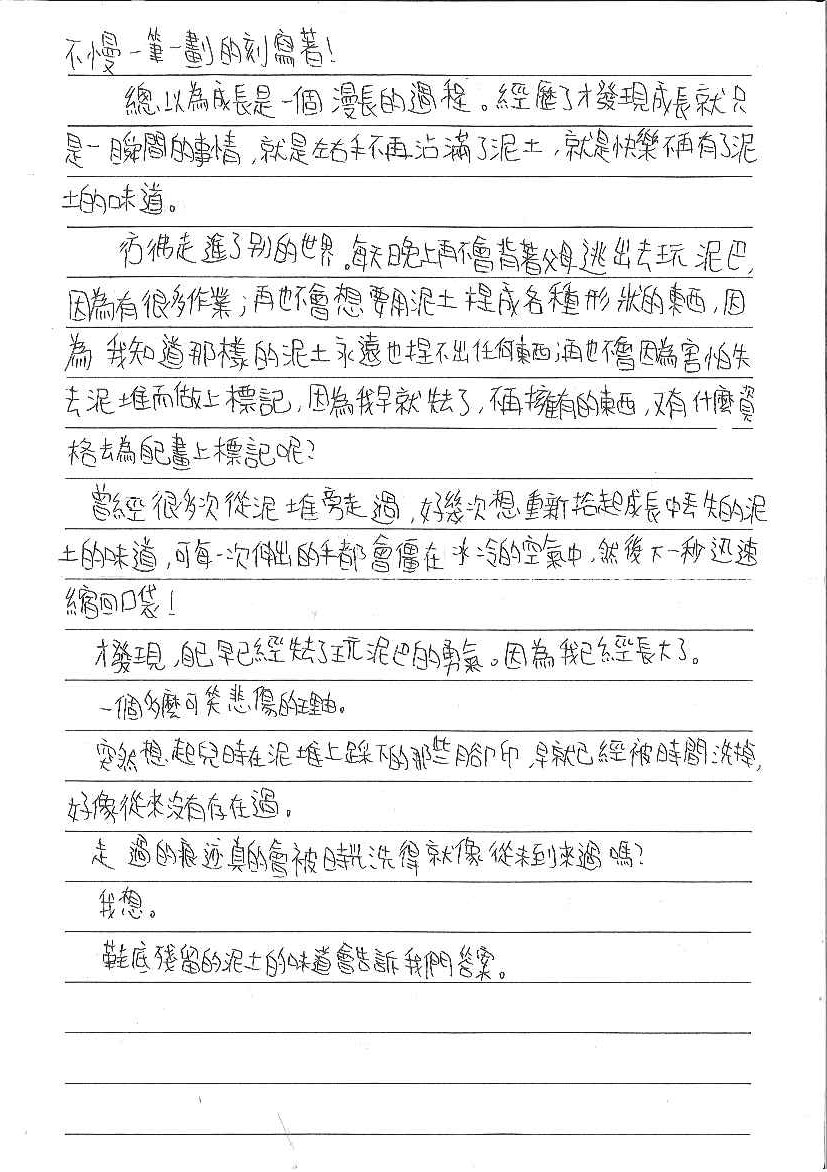 不慢一筆一劃的刻寫著!
總以為成長是一個漫長的過程。經歷了才發現成長就只
是一瞬間的事情,就是左右手不再沾滿了泥土,就是快樂不再有了泥
土的味道。
彷彿走進了別的世界。每天晚上再不會背著父母逃出去玩泥巴,
因為有很多作業;再也不會想要用泥土捏成各種形狀的東西,因
為我知道那樣的泥土永遠也捏不出任何東西;再也不會因為害怕失
去泥堆而做上標記,因為我早就失去了,不再擁有的東西,又有什麼資
格去為自己畫上標記呢?
曾經很多次從泥堆旁走過,好幾次想重新拾起成長中丟失的泥
土的味道,可每一次伸出的手都會僵在冰冷的空氣中,然後下一秒迅速
縮回口袋!
才發現,自己早已經失去了玩泥巴的勇氣。因為我已經長大了。
一個多麼可笑悲傷的理由。
突然想起兒時在泥堆上踩下的那些腳印,早就已經被時間洗掉,
好像從來沒有存在過。
走過的痕迹真的會被時光洗得就像從未到來過嗎?
我想。
鞋底殘留的泥土的味道會告訴我們答案。